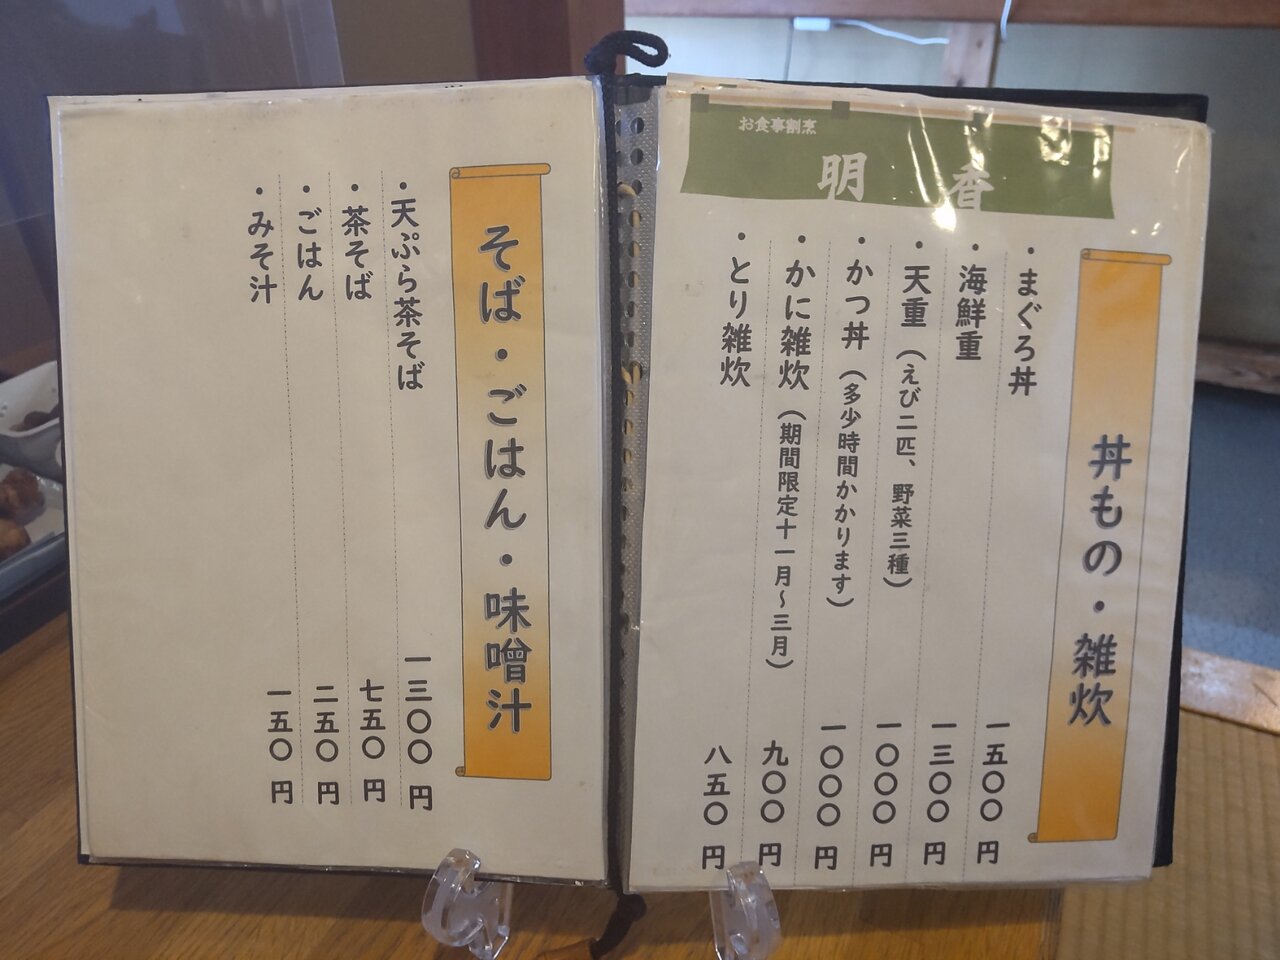 お食事割烹
明香
丼もの・雑炊
・まぐろ丼 一五〇〇円
・海鮮重 一三〇〇円
・天重（えび二匹、野菜三種） 一〇〇〇円
・かつ丼（多少時間かかります） 一〇〇〇円
・かに雑炊（期間限定十一月～三月） 九〇〇円
・とり雑炊 八五〇円
そば・ごはん・味噌汁
・天ぷら茶そば 一三〇〇円
・茶そば 七五〇円
・ごはん 二五〇円
・みそ汁 一五〇円